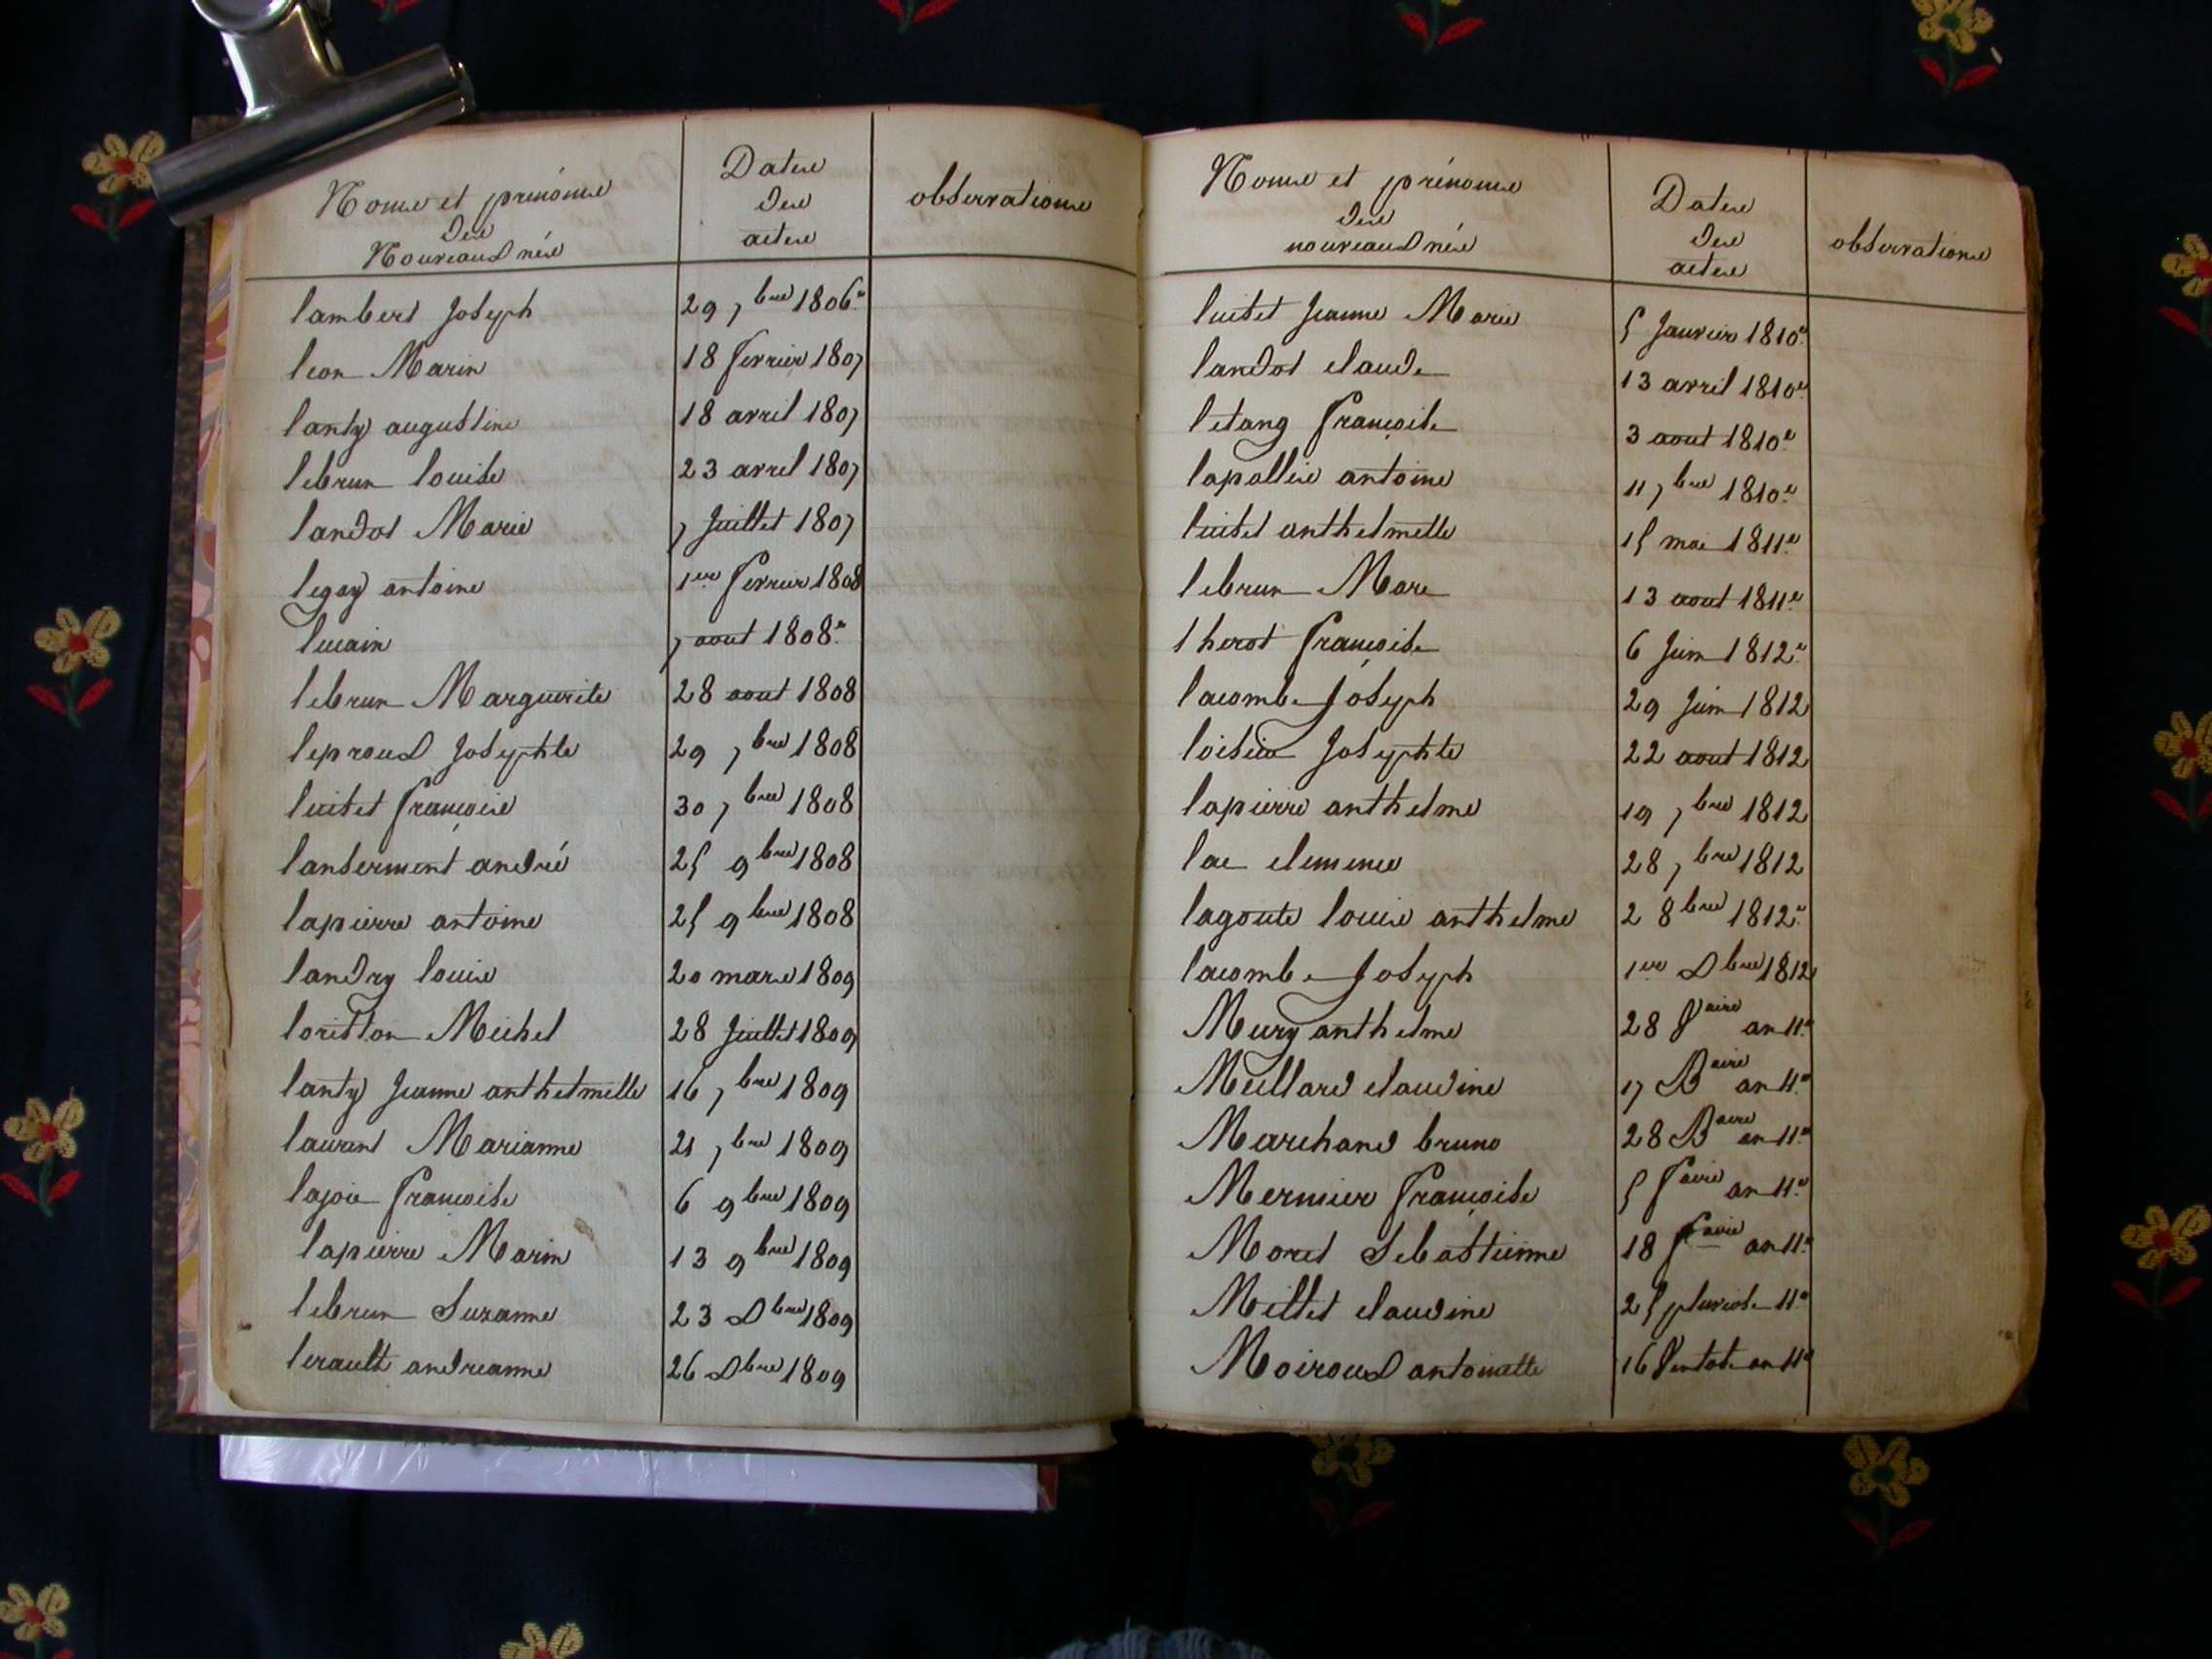 Noms et prénoms
des
Nouveaux nés
Dates
des
actes
observations
lambert Joseph 29 7bre 1806.
leon Marin 18 fevrier 1807
lanty augustine 18 avril 1807
lebrun louise 23 avril 1807
landot Marie 7 Juillet 1807
legay antoine 1er fevrier 1808
lucain 7 aout 1808.
lebrun Marguerite 28 aout 1808
leproux Josephte 29 7bre 1808
luitet françois 30 7bre 1808
lanserment andré 25 9bre 1808
lapierre antoine 25 9bre 1808
landry louis 20 mars 1809
loritton Michel 28 Juillet 1809
lanty Jeanne anthelmette 16 7bre 1809
laurent Marianne 21 7bre 1809
lajoie françoise 6 9bre 1809
lapierre Marin 13 9bre 1809
lebrun Suzanne 23 Xbre 1809
lerault andreanne 26 Xbre 1809
Noms et prénoms
des
nouveaux nés
Dates
des
actes
observations
luitet Jeanne Marie 5 Janvier 1810.
landot claude 13 avril 1810.
letang françoise 3 aout 1810.
lapallie antoine 11 7bre 1810.
luitet anthelmette 15 mai 1811.
lebrun Marc 13 aout 1811.
therot françoise 6 Juin 1812.
lacombe Joseph 29 Juin 1812
Josephte 22 aout 1812
lapierre anthelme 19 7bre 1812
lac clemence 28 7bre 1812
lagoute louis anthelme 2 8bre 1812.
lacombe Joseph 1er Xbre 1812
Mury anthelme 28 Vaire an 11.
Meillard claudine 17 Baire an 11.
Marchand bruno 28 Baire an 11.
Mermier françoise 5 faire an 11.
Moret Sebastienne 18 faire an 11.
Millet claudine 25 pluviose 11.
Moiroud antoinette 16 Ventose an 11